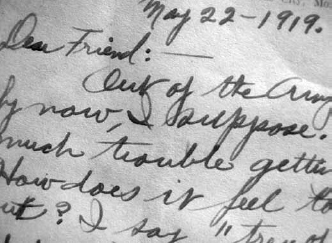 May 22-1919.
Dear Friend:—
Out of the Army
by now, I suppose.
much trouble gettin
How does it feel to
ut? I say "